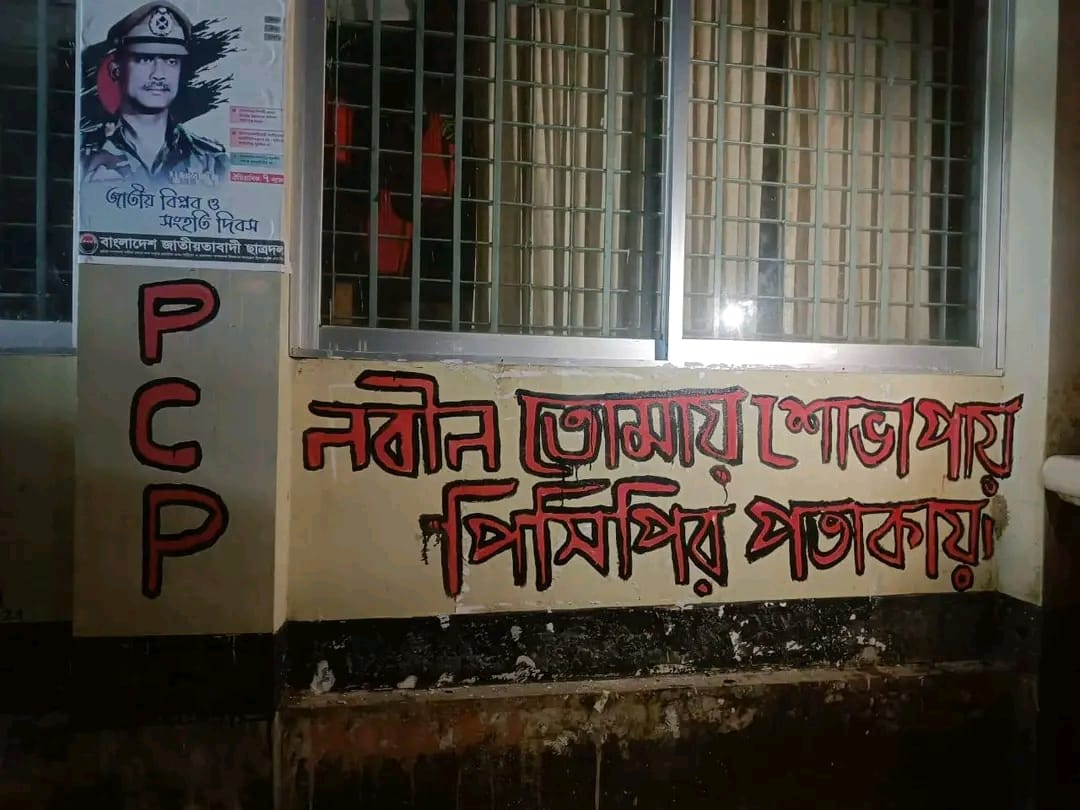 জাতীয় বিপ্লব ও
সংহতি দিবস
বাংলাদেশ জাতীয়তাবাদী ছাত্রদল
P
C
P
নবীন তোমায় শোভা পায়
পিসিপির পতাকায়।